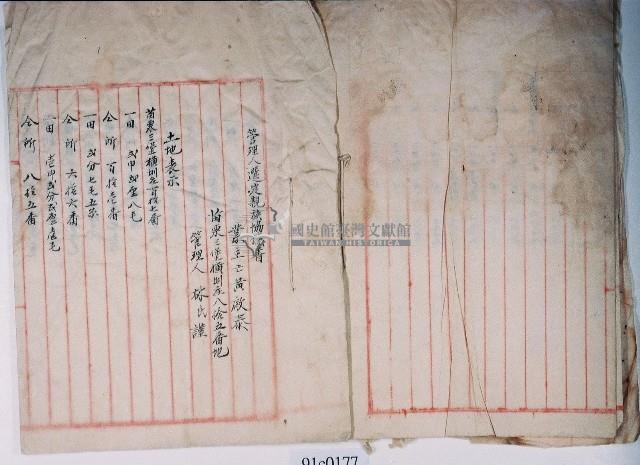 管理人選定親族協議書
業主亡黃啟泰
苗栗三堡橫圳庄八拾五番地
管理人 林氏謹
土地表示
苗栗三堡橫圳庄百拾七番
一田 貳甲四厘八毛
仝所 百拾壱番
一田 貳分七毛五糸
仝所 六拾六番
一田 壱甲貳分
仝所 八拾五番
國史館臺灣文獻館
TAIWAN HISTORICA
91c0177